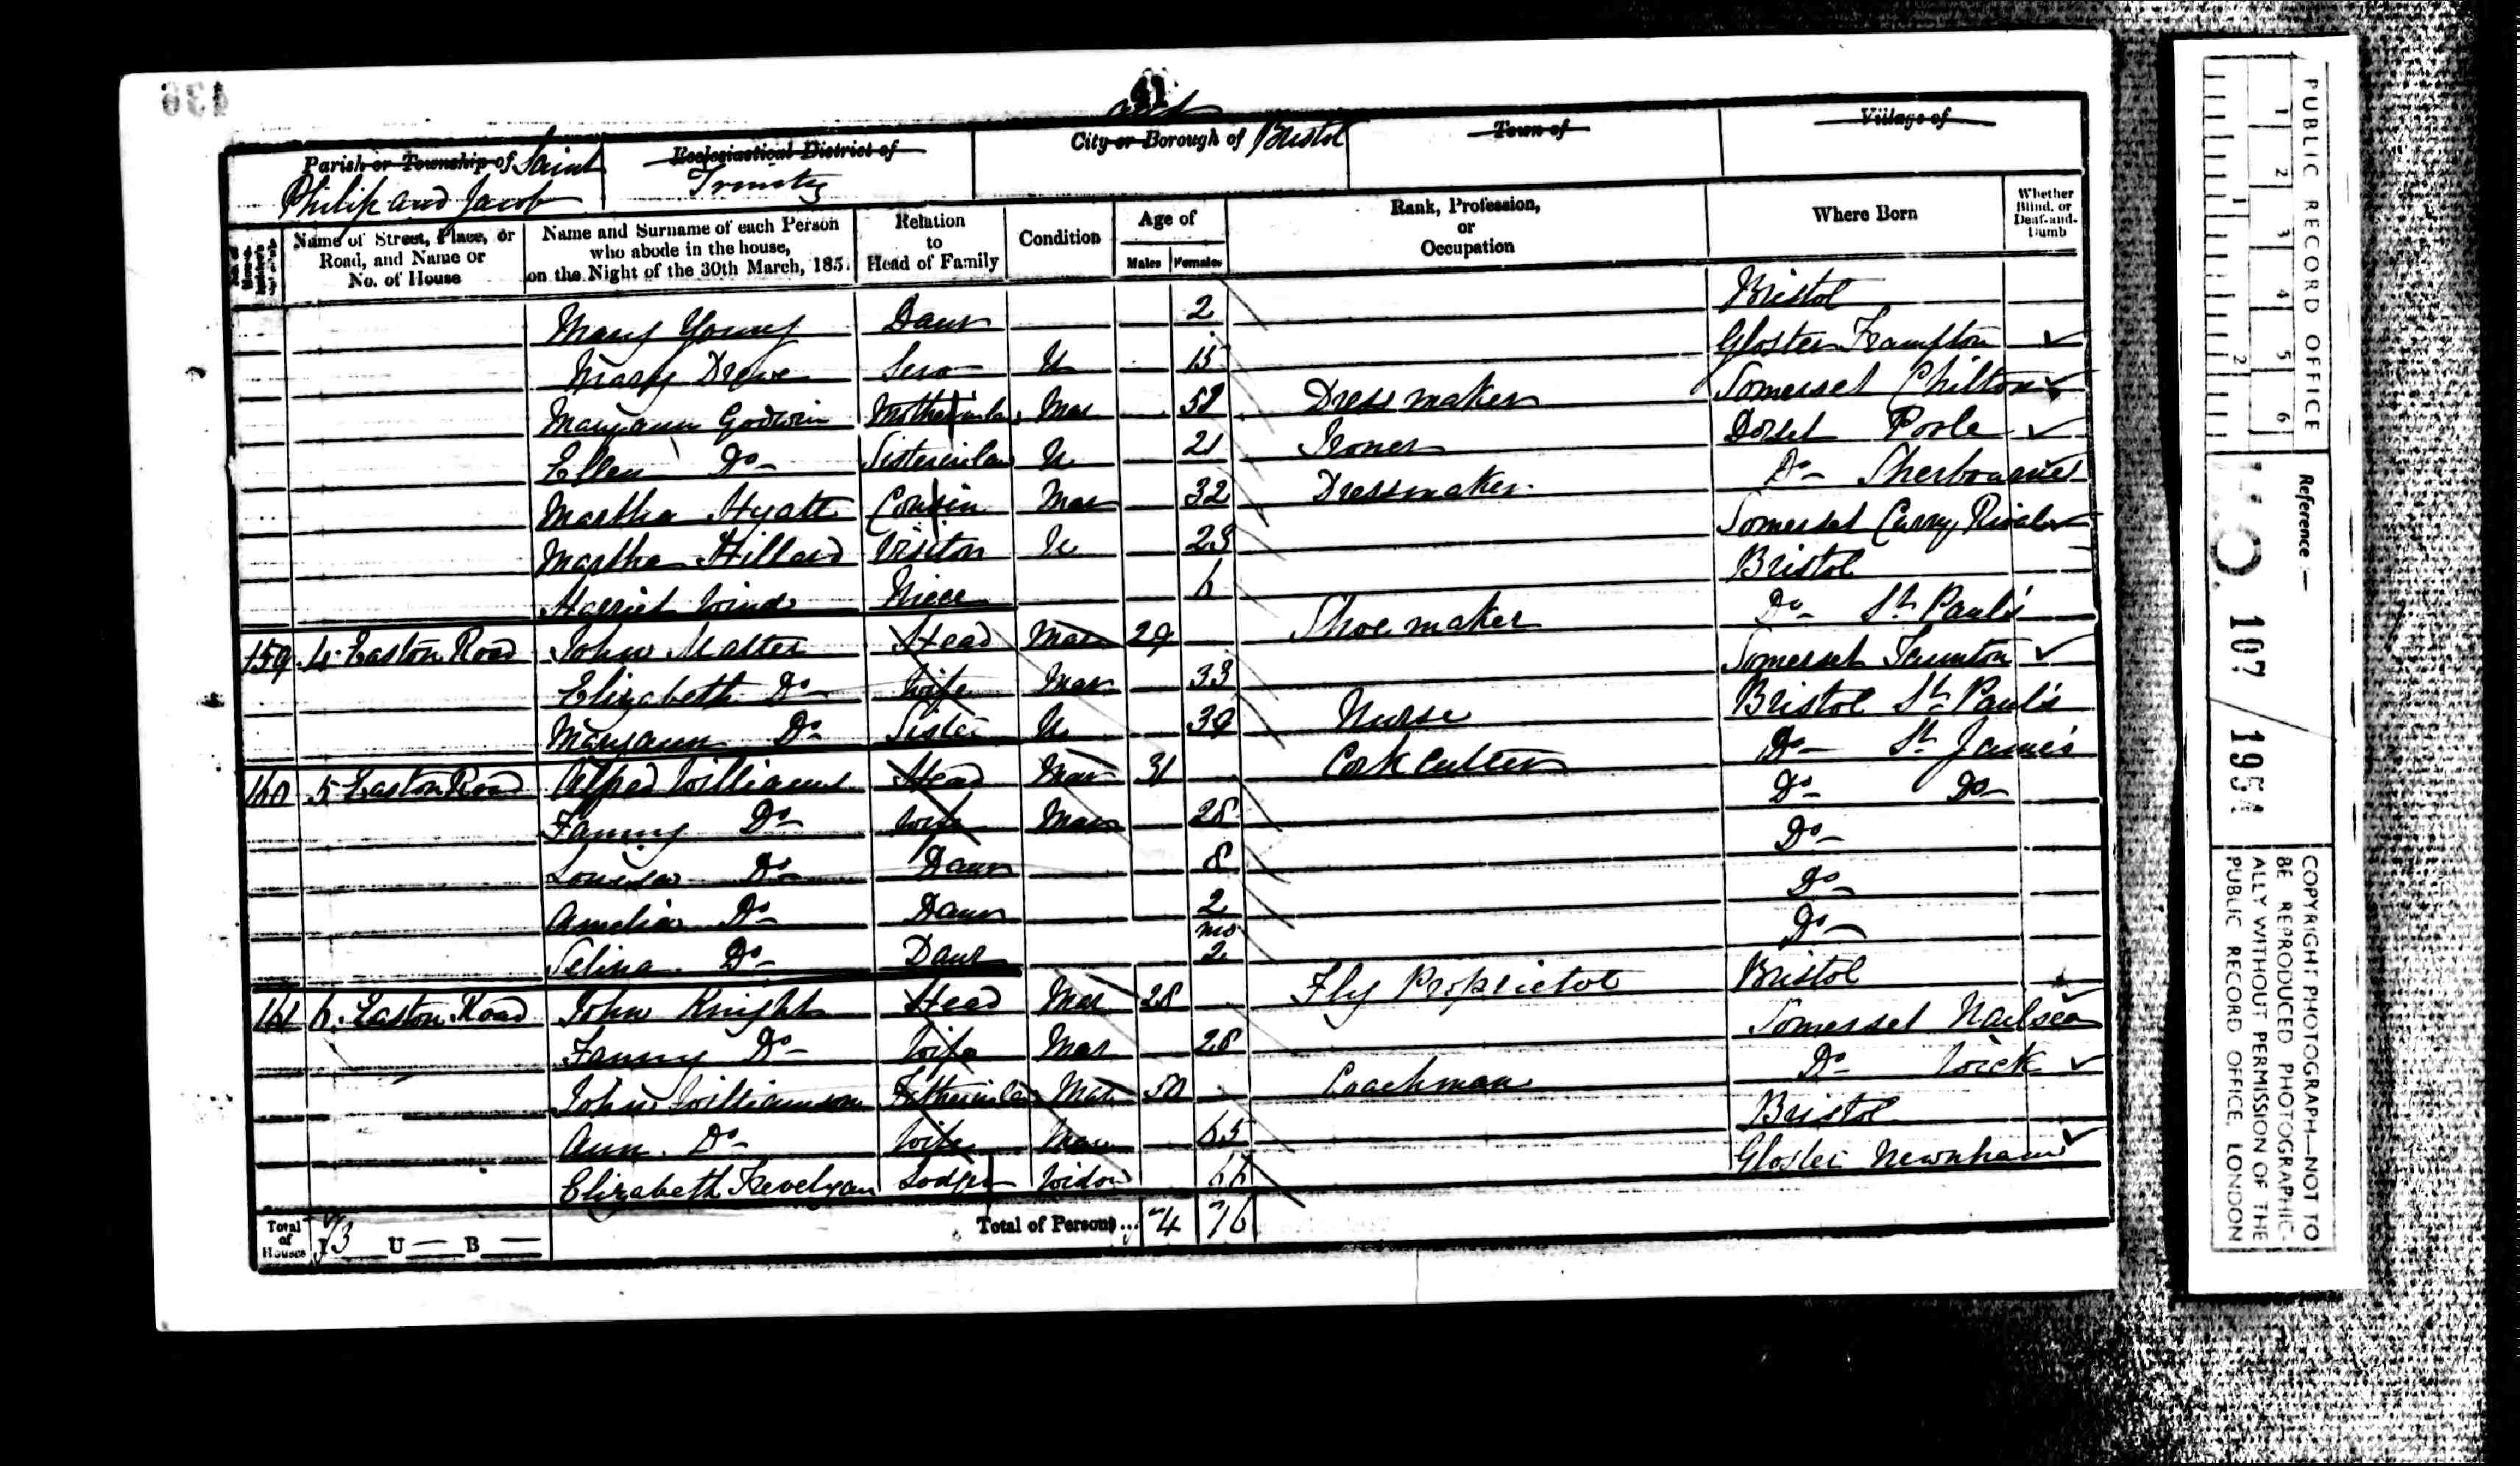 41
Parish or Township of Saint Philip and Jacob
Ecclesiastical District of Trinity
City or Borough of Bristol
Town of
Village of
Name of Street, Place, or Road, and Name or No. of House
Name and Surname of each Person who abode in the house, on the Night of the 30th March, 185.
Relation to Head of Family
Condition
Age of
Males Females
Rank, Profession, or Occupation
Where Born
Whether Blind, or Deaf-and-Dumb
Mary Young Daur 2 Bristol
Mary Drewe Serv U 15 Gloster Frampton
Maryann Godwin Motherinla Mar 58 Dressmaker Somerset Chilton
Ellen Do Sisterinlaw U 21 Ironer Dorset Poole
Martha Hyatt Cousin Mar 32 Dressmaker Do Sherbourne
Martha Hillard Visitor U 23 Somerset Curry Rivel
Harriet Wind Niece 6 Bristol
159 4 Easton Road John Matter Head Mar 29 Shoemaker Do St Paul's
Elizabeth Do Wife Mar 33 Somerset Taunton
Maryann Do Sister U 39 Nurse Bristol St Paul's
160 5 Easton Road Alfred Williams Head Mar 31 Cork Cutter Do St James
Fanny Do Wife Mar 28 Do Do
Louisa Do Daur 8 Do
Amelia Do Daur 2 Do
Selina Do Daur mo 2 Do
161 6 Easton Road John Knight Head Mar 28 Fly Proprietor Bristol
Fanny Do Wife Mar 28 Somerset Nailsea
John Williamson Fatherinla Mar 50 Coachman Do Wick
Ann Do Wife Mar 65 Bristol
Elizabeth Trevelyan Lodger Widow 66 Gloster Newnham
Total of Houses I 3 U — B —
Total of Persons... 4 16
436
PUBLIC RECORD OFFICE
1 2 3 4 5 6
1 2
Reference :—
HO 107 / 1951
COPYRIGHT PHOTOGRAPH—NOT TO
BE REPRODUCED PHOTOGRAPHIC-
ALLY WITHOUT PERMISSION OF THE
PUBLIC RECORD OFFICE, LONDON